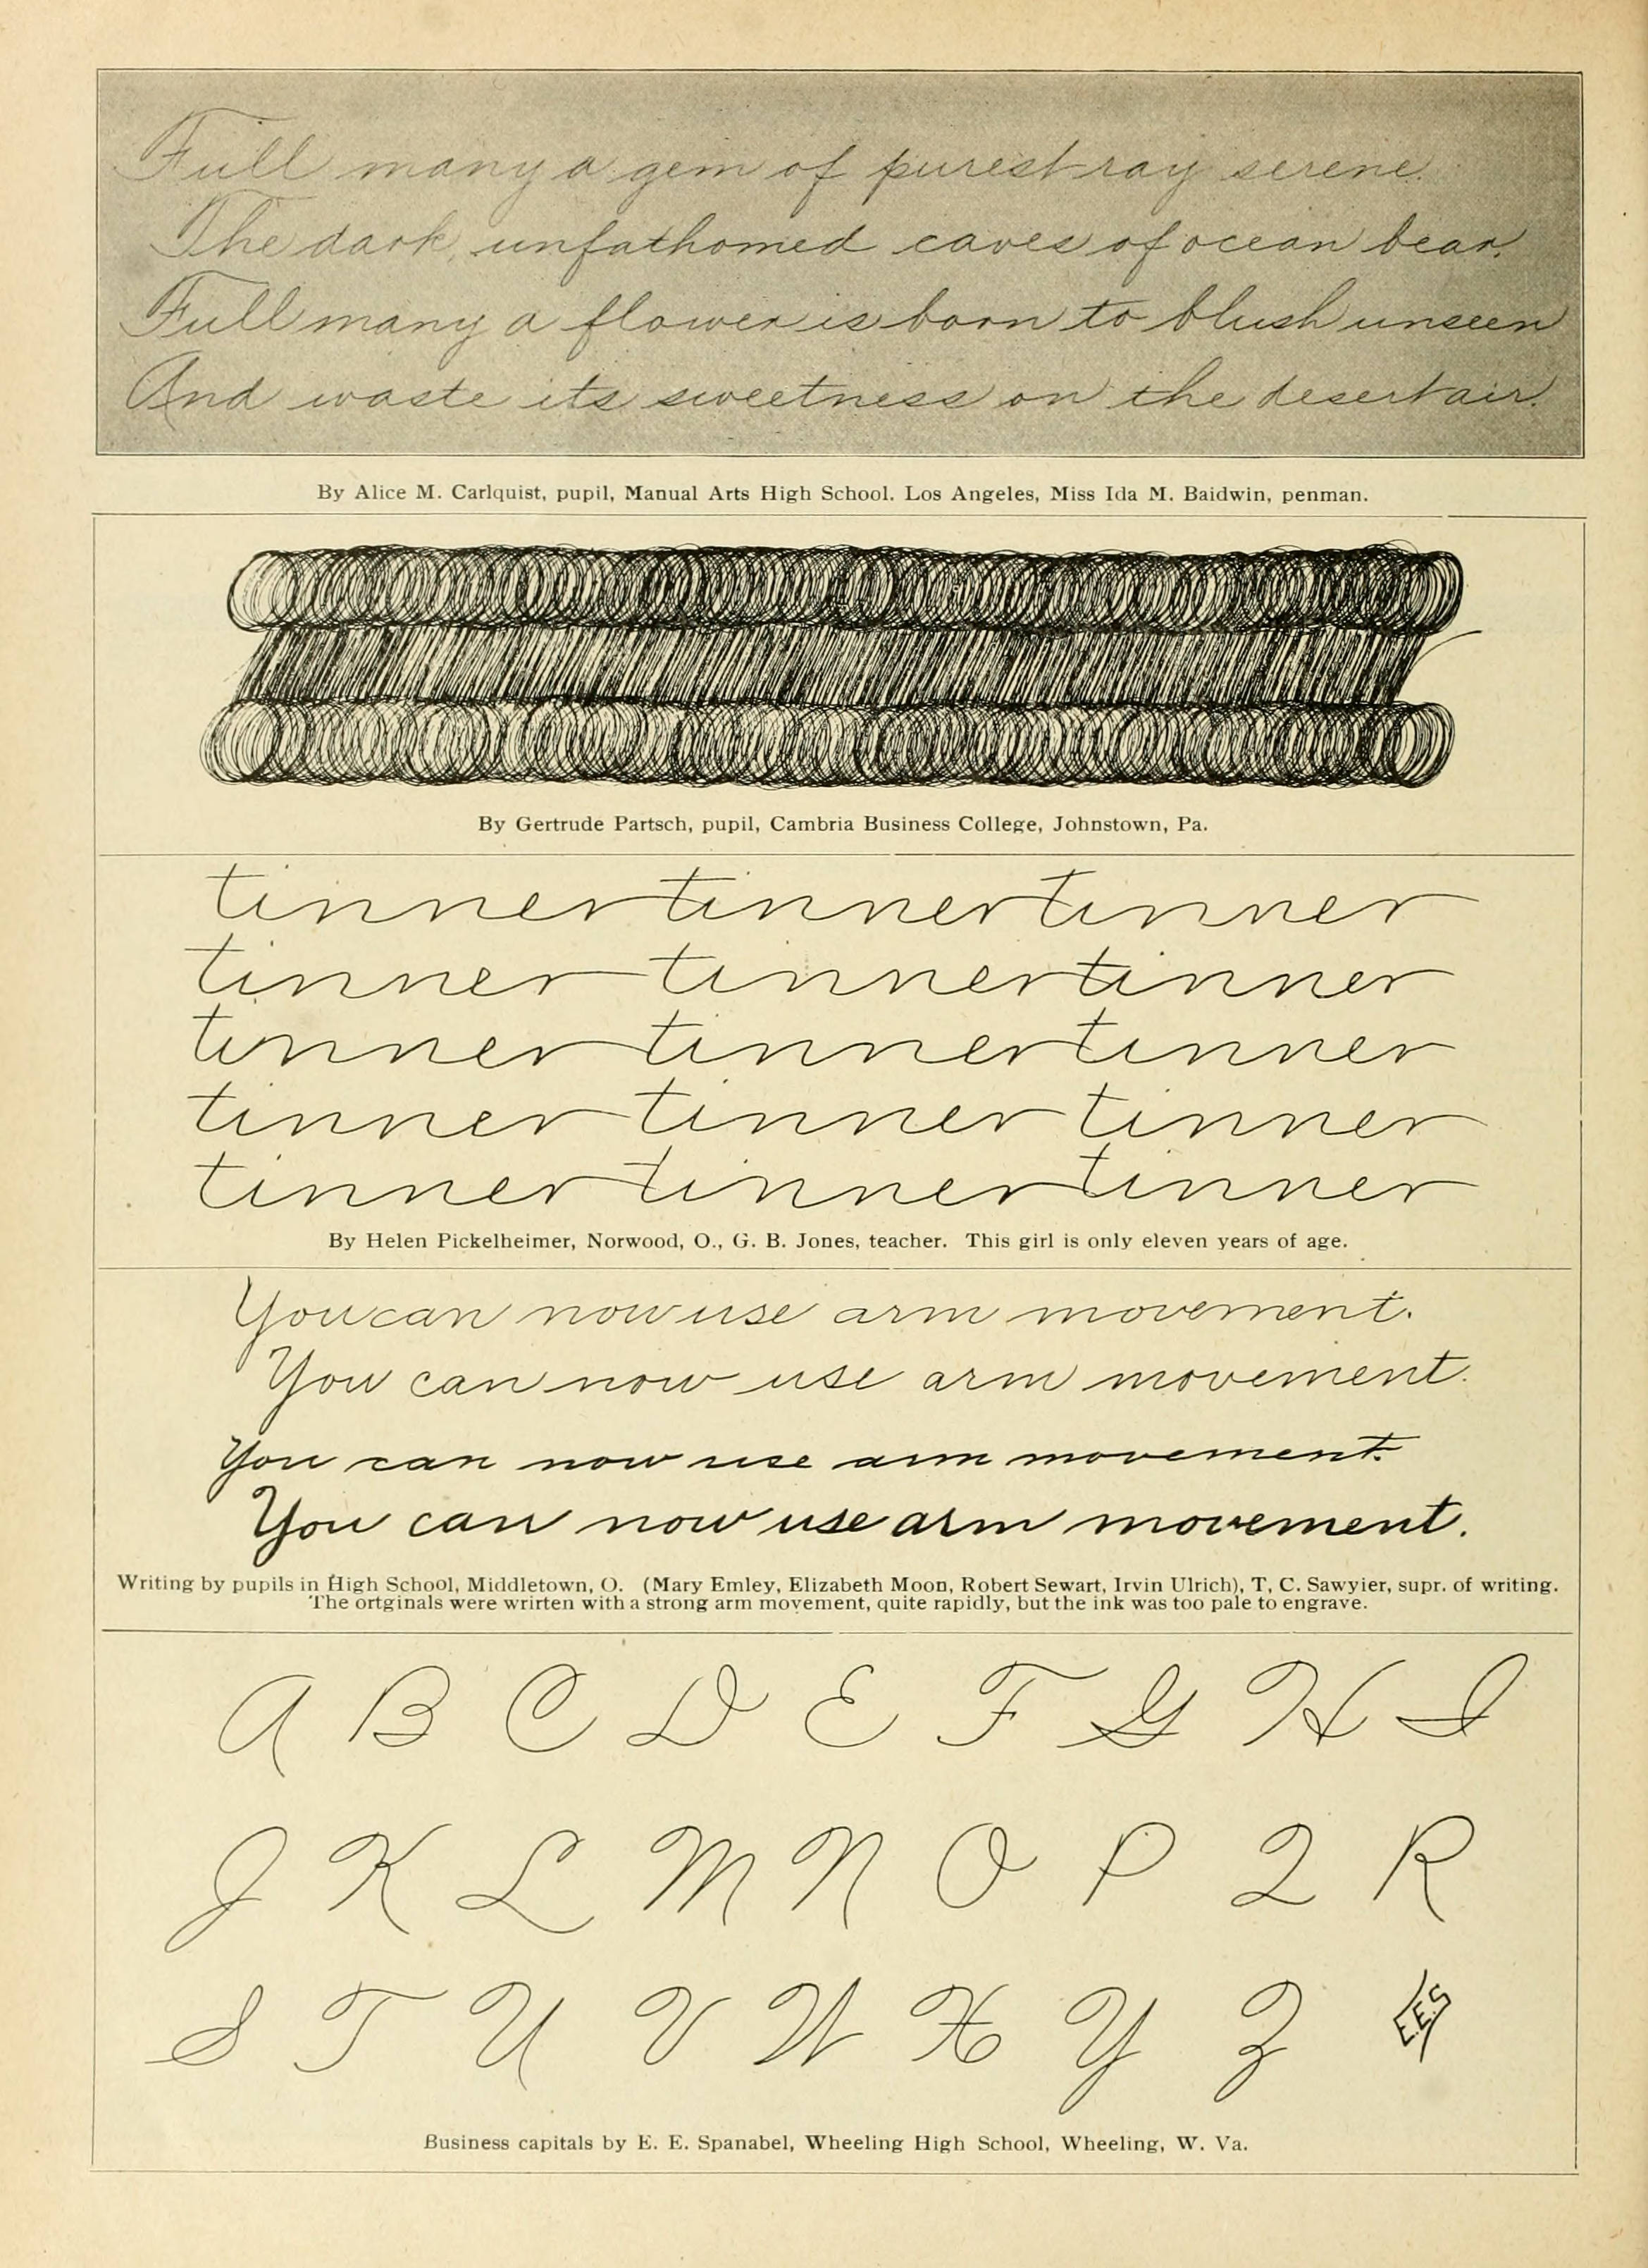 Full many a gem of purest ray serene.
The dark, unfathomed caves of ocean bear.
Full many a flower is born to blush unseen
And waste its sweetness on the desert air.
By Alice M. Carlquist, pupil, Manual Arts High School. Los Angeles, Miss Ida M. Baidwin, penman.
By Gertrude Partsch, pupil, Cambria Business College, Johnstown, Pa.
tinner tinner tinner
tinner tinner tinner
tinner tinner tinner
tinner tinner tinner
tinner tinner tinner
By Helen Pickelheimer, Norwood, O., G. B. Jones, teacher. This girl is only eleven years of age.
You can now use arm movement.
You can now use arm movement.
You can now use arm movement.
You can now use arm movement.
Writing by pupils in High School, Middletown, O. (Mary Emley, Elizabeth Moon, Robert Sewart, Irvin Ulrich), T, C. Sawyier, supr. of writing.
The ortginals were wrirten with a strong arm movement, quite rapidly, but the ink was too pale to engrave.
A B C D E F G H I
J K L M N O P Q R
S T U V W X Y Z E.E.S
Business capitals by E. E. Spanabel, Wheeling High School, Wheeling, W. Va.